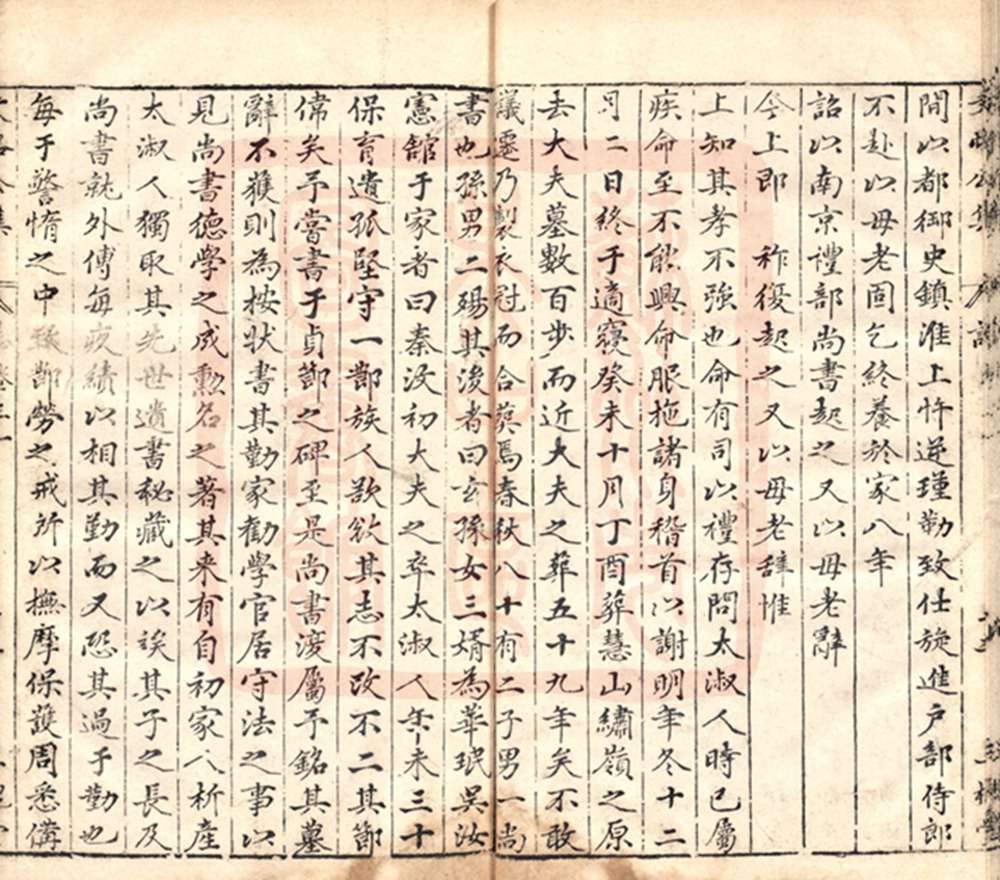 間以都御史鎮淮上忤逆瑾勒致仕旋進户部侍郎
不赴以母老固乞終養於家八年
詔以南京禮部尚書起之又以母老辭
今上即 祚復起之又以母老辞惟
上知其孝不強也命有司以禮存問太淑人時已屬
疾命至不能興命服拖諸身稽首以謝明年冬十二
月二日終于適寢癸未十月丁酉葬慧山繡嶺之原
去大夫墓數百步而近大夫之葬五十九年矣不敢
議遷乃製衣冠而合葬焉春秋八十有二子男一尚
書也孫男二殤其後者曰玄孫女三婿為華珉吳汝
憲舘于家者曰秦汶初大夫之卒太淑人年未三十
保育遺孤堅守一節族人歆欲其志不改不二其節
偉矣予嘗書于貞節之碑至是尚書復屬予銘其墓
辭不獲則為按状書其勤家勸學官居守法之事以
見尚書德學之成勲名之著其来有自初家人析産
太淑人獨取其先世遺書秘藏之以俟其子之長及
尚書就外傅每夜績以相其勤而又恐其過于勤也
每于警惰之中致節勞之戒所以撫摩保護周悉備